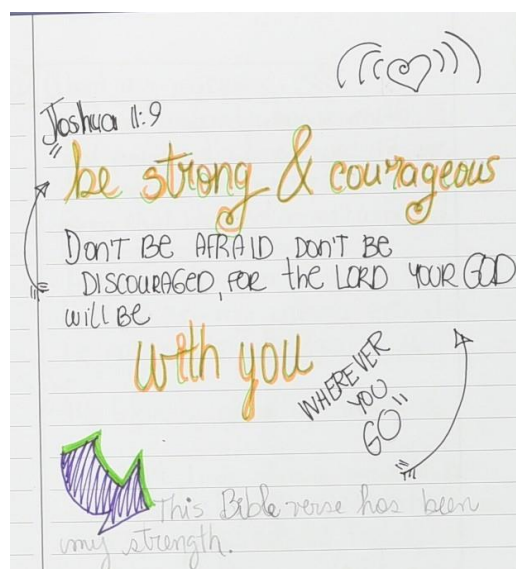 Joshua 11:9
"be strong & courageous
DON'T BE AFRAID DON'T BE
DISCOURAGED, FOR the LORD YOUR GOD
will BE
with you
WHEREVER
YOU
GO"
This Bible verse has been
my strength.